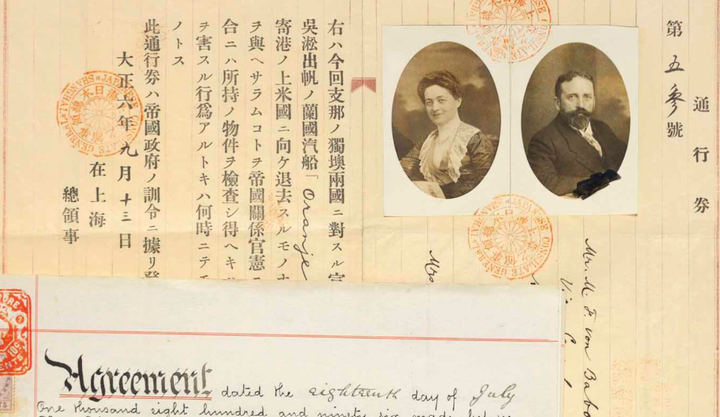 通行券
第五參號
Mr. M. F. von Babo
Mrs
右ハ今回支那ノ獨墺兩國ニ對スル宣
吳淞出帆ノ蘭國汽船「Oranje
寄港ノ上米國ニ向ケ退去スルモノ
ヲ與ヘサラムコトヲ帝國關係官憲ニ
合ニハ所持ノ物件ヲ檢查シ得ヘキ
ヲ害スル行爲アルトキハ何時ニテ
ノトス
此通行券ハ帝國政府ノ訓令ニ據リ發
大正六年九月十三日
在上海
總領事
JAPANESE CONSULATE GENERAL
Agreement dated the eighteenth day of July
One thousand eight hundred and ninety six made